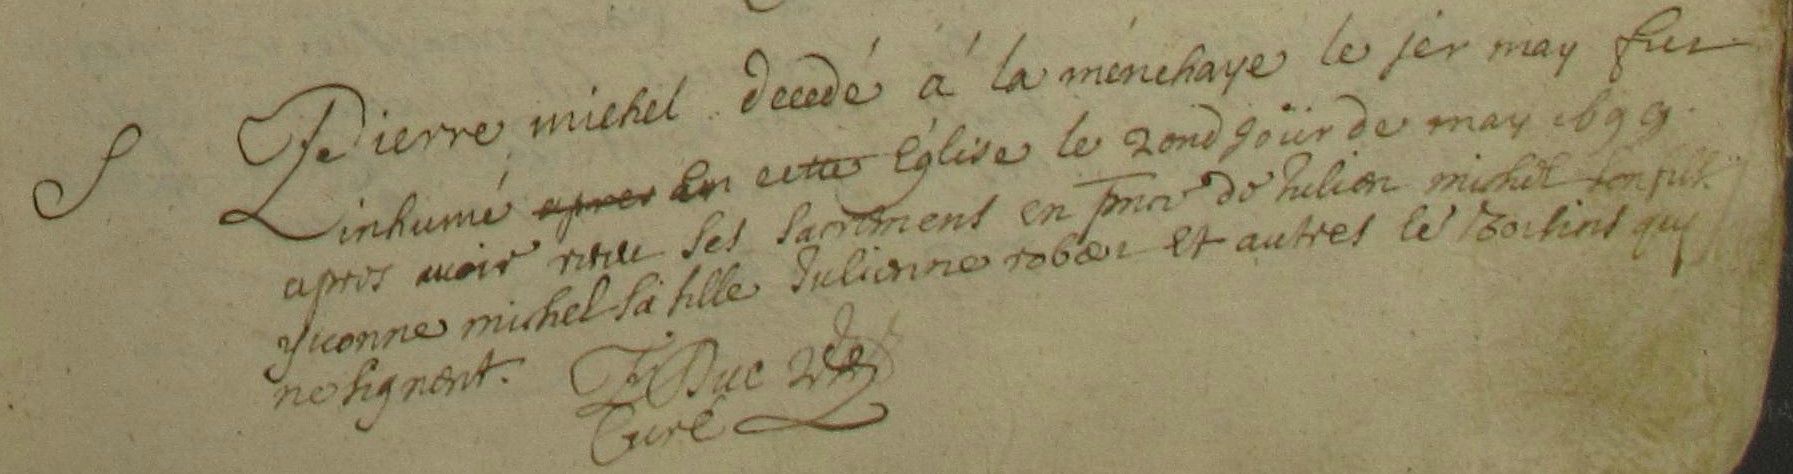 S Pierre michel decedé à la ménehaye le jer may fut
inhumé apres en cette Église le 2ond joür de may 1699
apres auoir receu ses sacremens en pnce de Julien michel son fils
yuonne michel sa fille Julienne rober et autres le Voisins qui
ne signent. Duc
Curé